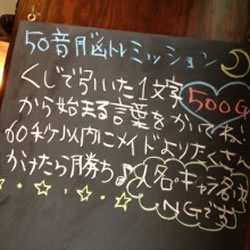 50音脳トレミッション
くじで引いた1文字 500G
から始まる言葉をかいてね
60秒以内にメイドよりたくさん
かけたら勝ち♪ 人名・キャラ名は
NGです